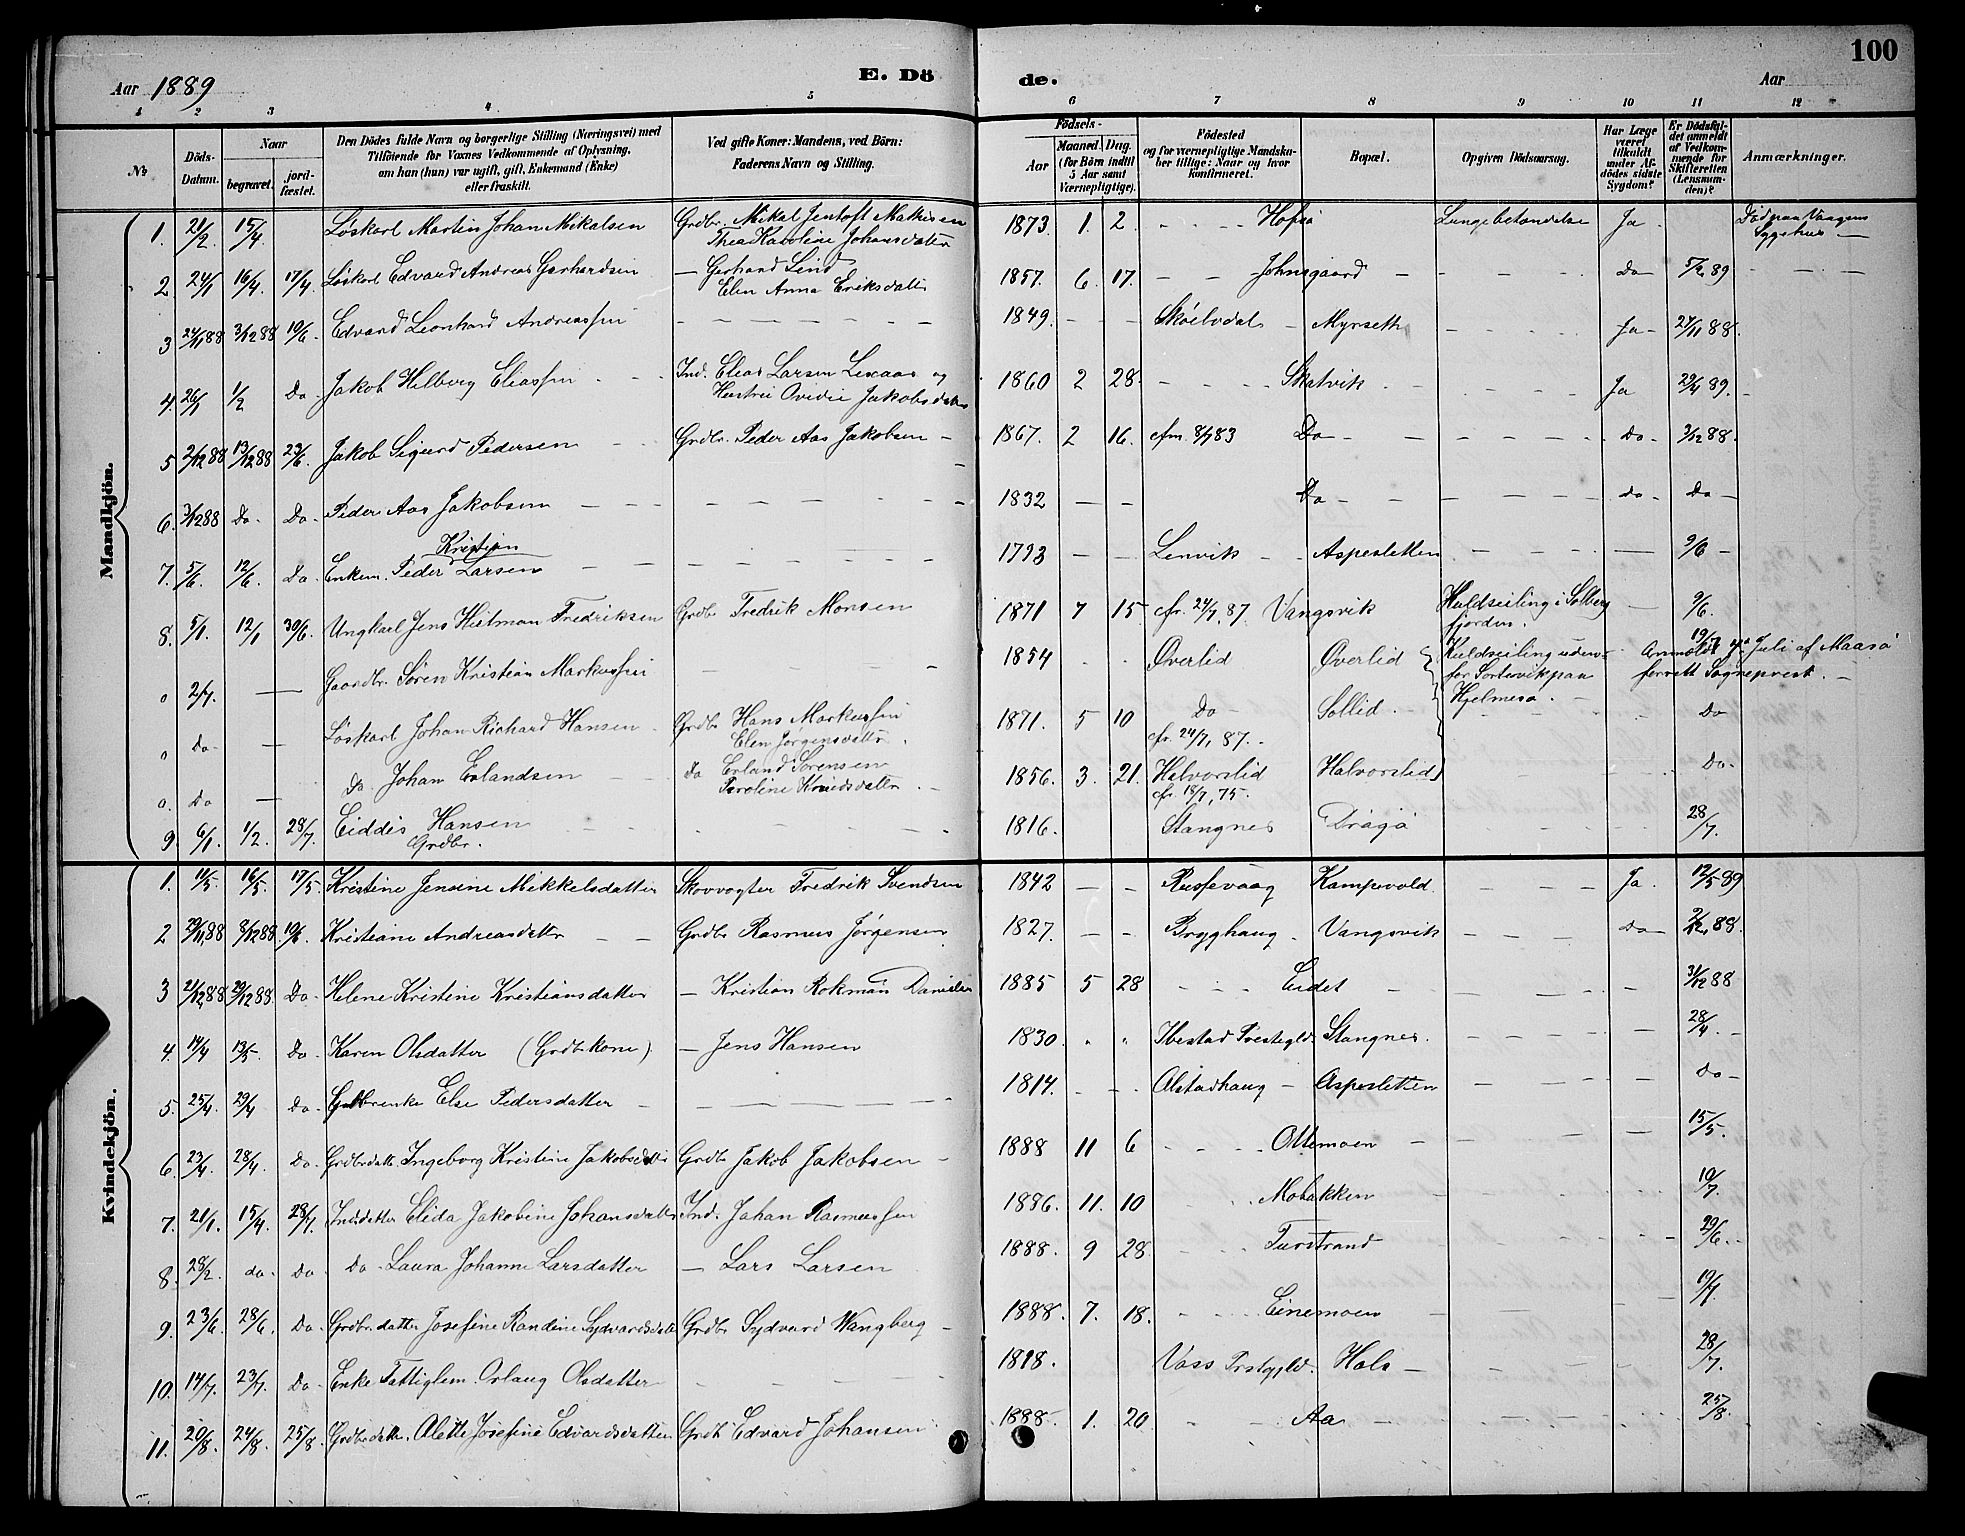 100
Aar 1889 E. Dö de. Aar
1 2 3 4 5 6 7 8 9 10 11 12
No
Döds-Datum.
Naar
begravet.
jord-fæstet.
Den Dödes fulde Navn og borgerlige Stilling (Næringsvei) med
Tilföiende for Voxnes Vedkommende af Oplysning,
om han (hun) var ugift, gift, Enkemand (Enke)
eller fraskilt.
Ved gifte Koner: Mandens, ved Börn:
Faderens Navn og Stilling.
Födsels-
Aar
Maaned. Dag.
(for Börn indtil
5 Aar samt
Værnepligtige).
Födested
og for værnepligtige Mandska-
ber tillige: Naar og hvor
konfirmeret.
Bopæl.
Opgiven Dödsaarsag.
Har Læge
været
tilkaldt
under Af-
dödes sidste
Sygdom?
Er Dödsfal-
det anmeldt
af Vedkom-
mende for
Skifteretten
(Lensman-
den)?
Anmærkninger.
Mandkjön.
1. 21/2. 15/4. Løskarl Martin Johan Mikalsen Grdbr. Mikal Jentoft Mathisen Thea Karoline Johansdatter 1873. 1. 2. Hofsø Lungebetændelse Ja Død paa Vaagens Sygehus
2. 24/1 16/4. 17/4. Løskarl Edvard Andreas Gerhardsen — Gerhard Lind Elen Anna Eriksdatter 1857. 6. 17. Johnsgaard Do 5/2 89
3 24/11 88 3/12 88 10/6. Edvard Leonhard Andreassen 1849. Myrseth Ja 27/11 88.
4. 26/1 1/2 Do Jakob Hilberg Eliassen Ind. Elias Larsen Lexaas og Hustru Ovidie Jakobsdatter 1860 2 28. Skatvik Ja 29/4 89.
5 2/12 88 13/12 88 23/6. Jakob Sigurd Pedersen Grdbr. Peder Aas Jakobsen 1867. 2 16. cfm. 8/7 83 Do Do 3/12 88.
6. 3/12 88 Do Do Peder Aas Jakobsen 1832 Do Do Do
7. 5/6. 12/6. Do Enkem. Peder Kristian Larsen 1793 Lenvik Aspesletten 9/6
8. 5/1. 12/1 30/6. Ungkarl Jens Hilman Fredriksen Grdbr Fredrik Monsen 1871 7 15 cfr. 24/7, 87. Vangsvik Kuldseiling i Solbergfjorden. 9/6.
o 2/7. — Gaardbr. Sören Kristian Markussen 1854 Øverlid Øverlid Kuldseiling udenfor Sortevik paa Hjelmesø. Anmeldt 19/7 Juli af Maasø Sogneprest.
o Do — Løskarl Johan Richard Hansen Grdbr Hans Markussen Elen Jørgensdatter 1871. 5 10 Do cfr. 24/7, 87. Sollid Do
o. Do — Do Johan Erlandsen Do Erland Sørensen 1856. 3. 21. Halvorslid cfr. 18/7, 75. Halvorslid Do
9. 6/1 1/2. 28/7. Hansen Grdbr. 1816. Stangnes 28/7.
Kvindekjön.
1. 11/5. 16/5. 17/5. Kristine Jensine Mikkelsdatter Skovvogter Fredrik Svendsen 1842 Russevaag Kampevold. Ja. 12/5 89
2 29/11 88 8/12 88. 10/6. Kristiane Andreasdatter Grdbr Rasmus Jørgensen 1827. Brygghaug Vangsvik Do 2/12, 88.
3 21/12 88 29/12 88. Do Helene Kristine Kristiansdatter — Kristian Rokman Danielsen 1885 5 28 Eidet 31/12 88
4. 14/4 13/5. Do Karen Olsdatter (Grdbr kone) — Jens Hansen 1830. Ibestad Prestegld. Stangnes. 28/4.
5. 25/4. 29/4 Do Grdbrenke Else Pedersdatter 1814. Alstadhaug Aspesletten Do
6. 23/4. 28/4. Do Grdbrdatter Ingeborg Kristine Jakobsdatter Grdbr Jakob Jakobsen 1888 11 6 Ottemoen 15/5.
7. 21/1. 15/4. 28/7. Inddatter Elida Jakobine Johansdatter Ind. Johan Rasmussen 1886. 11. 10 Mobakken 10/7.
8. 28/2. do. Do Do Laura Johanne Larsdatter — Lars Larsen 1888. 9 28. Furstrand 29/6.
9. 23/6. 28/6. Do Grdbr.datter Josefine Randine Sydvardsdatter Grdbr Sydvard Wangberg 1888. 7. 18. Einemoen
10. 14/7. 23/7. Do Enke Fattiglem Orlaug Olsdatter 1818. Voss Prstgjld. Hals 28/7.
11. 20/8. 24/8. 25/8. Grdbrdatter. Alette Josefine Edvardsdatter Grdbr Edvard Johansen 1888. 1. 20 Aa 25/8.